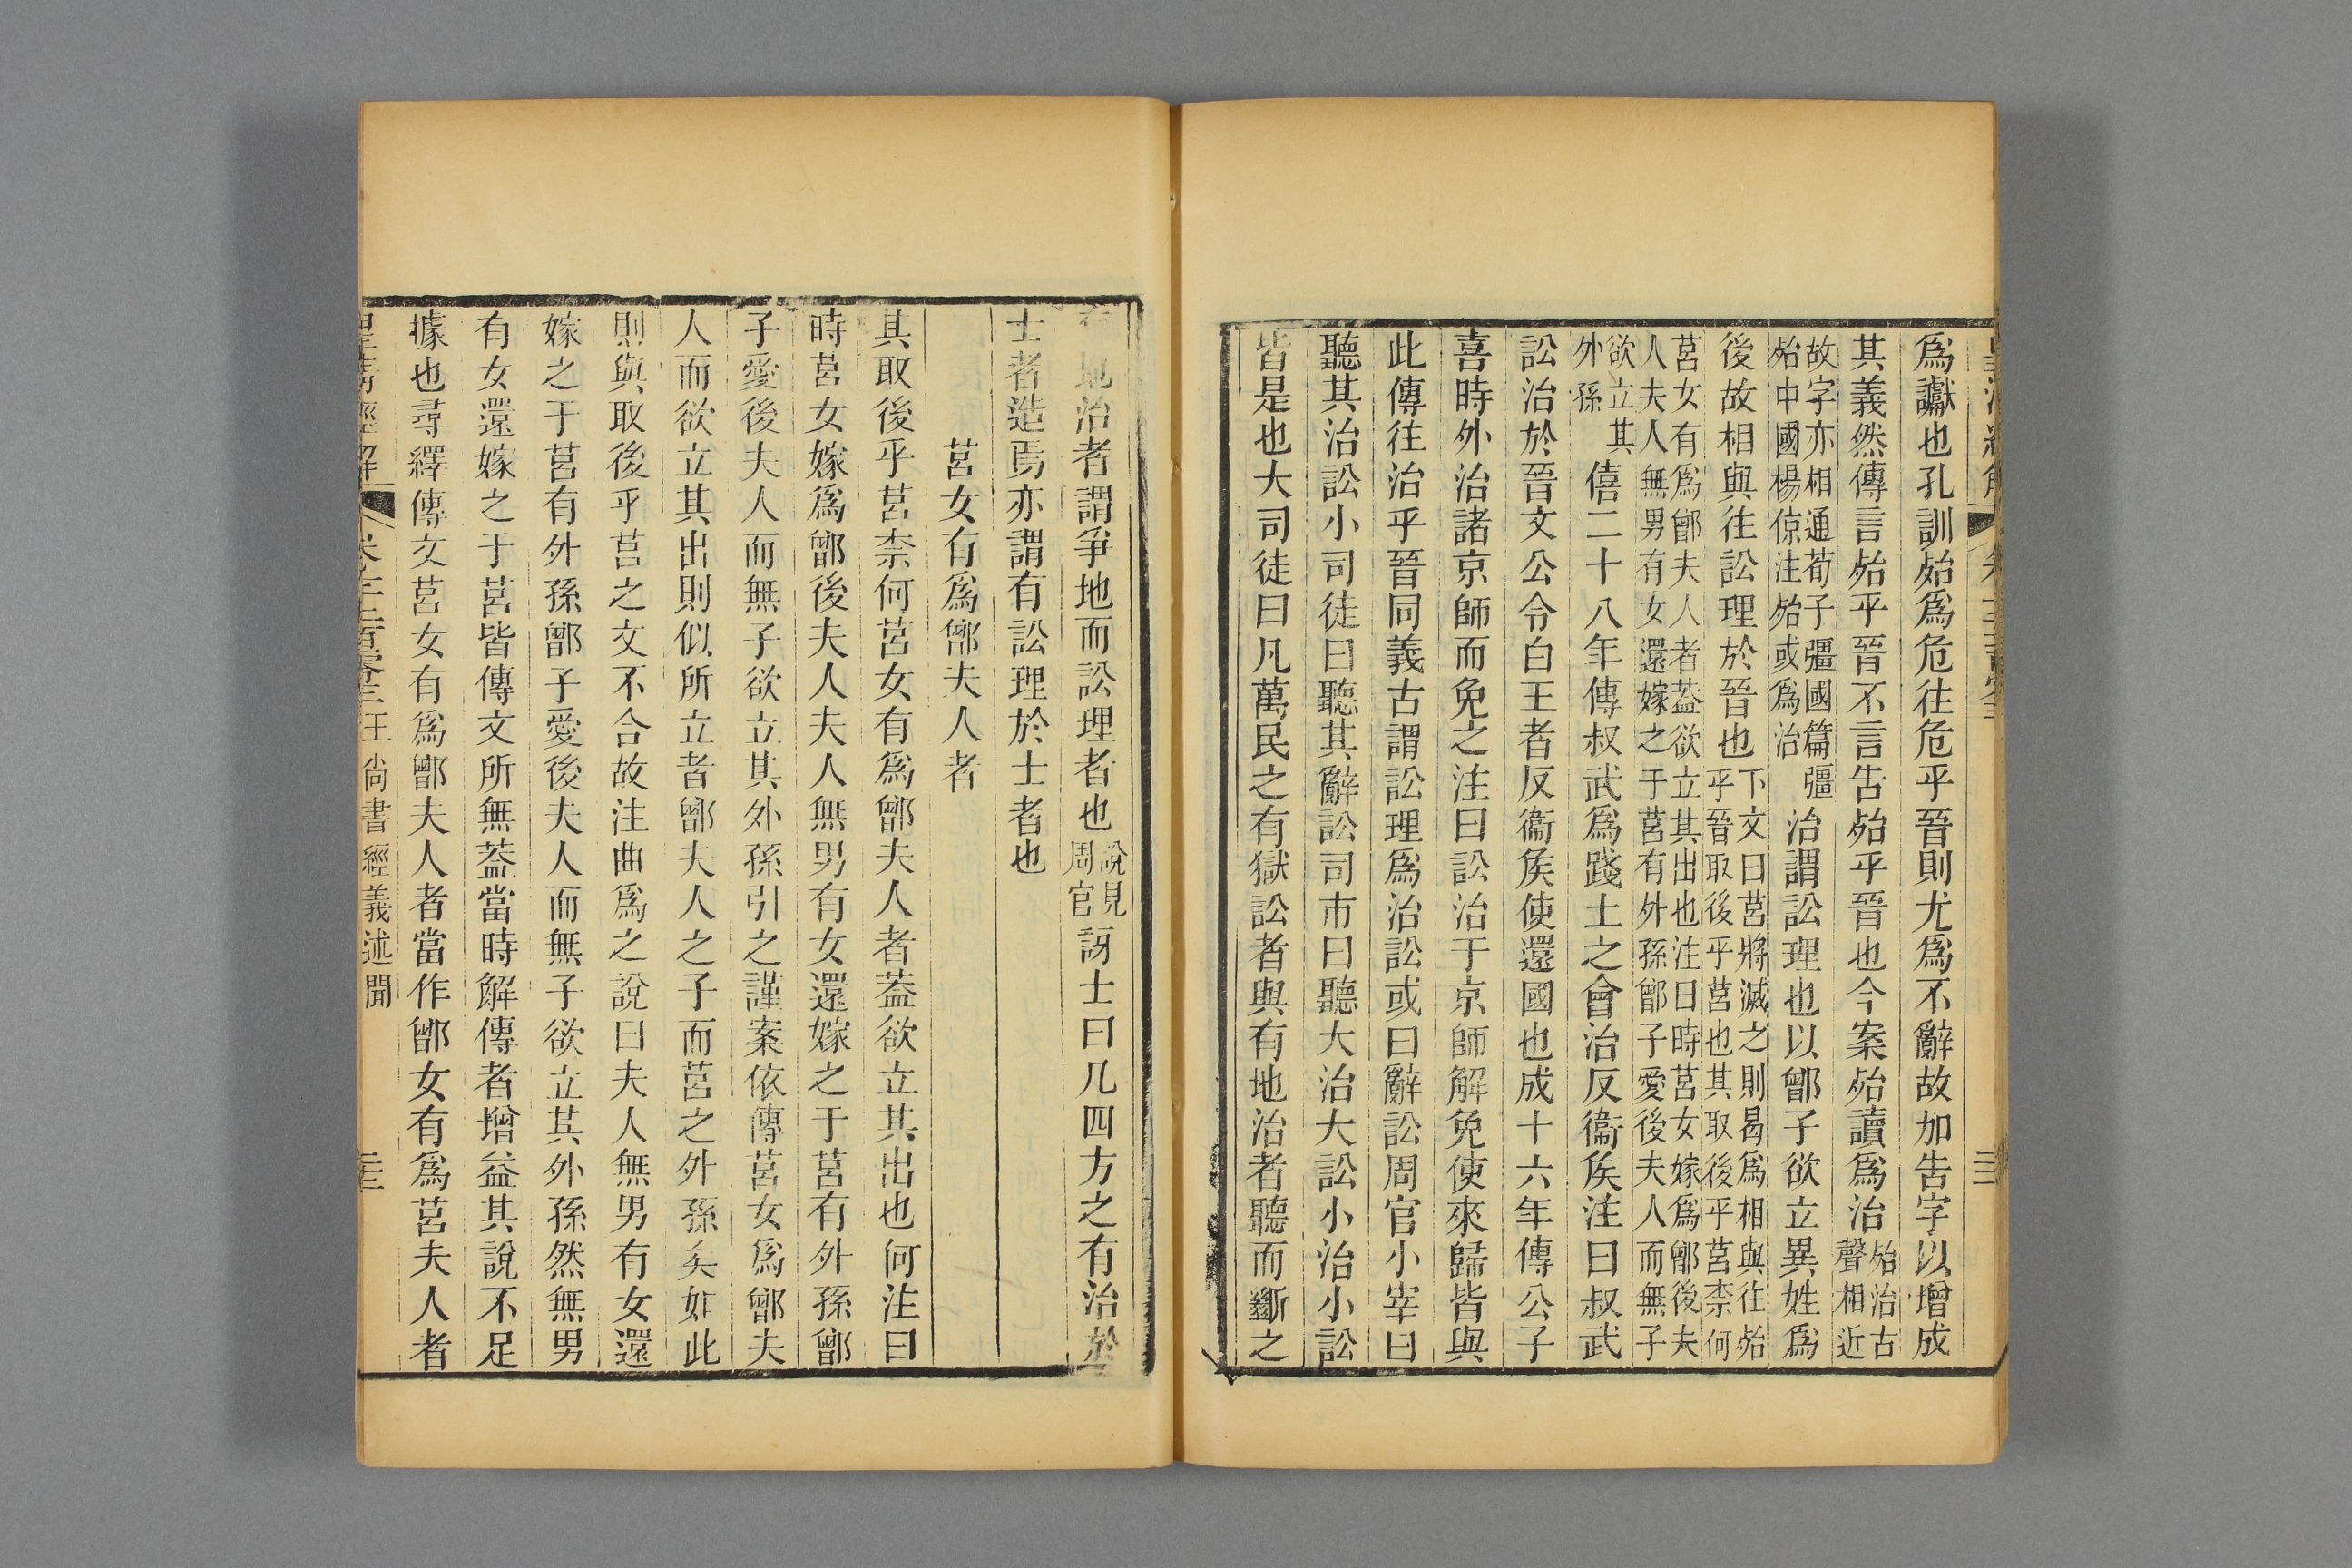 爲讞也孔訓殆爲危往危乎晉則尤爲不辭故加吿字以增成
其義然傳言殆乎晉不言吿殆乎晉也今案殆讀爲治殆治古聲相近
故字亦相通荀子彊國篇彊殆中國楊倞注殆或爲治治謂訟理也以鄫子欲立異姓爲
後故相與往訟理於晉也下文曰莒將滅之則曷爲相與往殆乎晉取後乎莒也其取後乎莒柰何
莒女有爲鄫夫人者葢欲立其出也注曰時莒女嫁爲鄫後夫人夫人無男有女還嫁之于莒有外孫鄫子愛後夫人而無子
欲立其外孫僖二十八年傳叔武爲踐土之會治反衞矦注曰叔武
訟治於晉文公令白王者反衞矦使還國也成十六年傳公子
喜時外治諸京師而免之注曰訟治于京師解免使來歸皆與
此傳往治乎晉同義古謂訟理爲治訟或曰辭訟周官小宰曰
聽其治訟小司徒曰聽其辭訟司市曰聽大治大訟小治小訟
皆是也大司徒曰凡萬民之有獄訟者與有地治者聽而斷之
地治者謂爭地而訟理者也說見周官訝士曰凡四方之有治於
士者造焉亦謂有訟理於士者也
莒女有爲鄫夫人者
其取後乎莒柰何莒女有爲鄫夫人者葢欲立其出也何注曰
時莒女嫁爲鄫後夫人夫人無男有女還嫁之于莒有外孫鄫
子愛後夫人而無子欲立其外孫引之謹案依傳莒女爲鄫夫
人而欲立其出則似所立者鄫夫人之子而莒之外孫矣如此
則與取後乎莒之文不合故注曲爲之說曰夫人無男有女還
嫁之于莒有外孫鄫子愛後夫人而無子欲立其外孫然無男
有女還嫁之于莒皆傳文所無葢當時解傳者增益其說不足
據也尋繹傳文莒女有爲鄫夫人者當作鄫女有爲莒夫人者
皇淸經解 卷一千二百零三 王尙書經義述聞 三